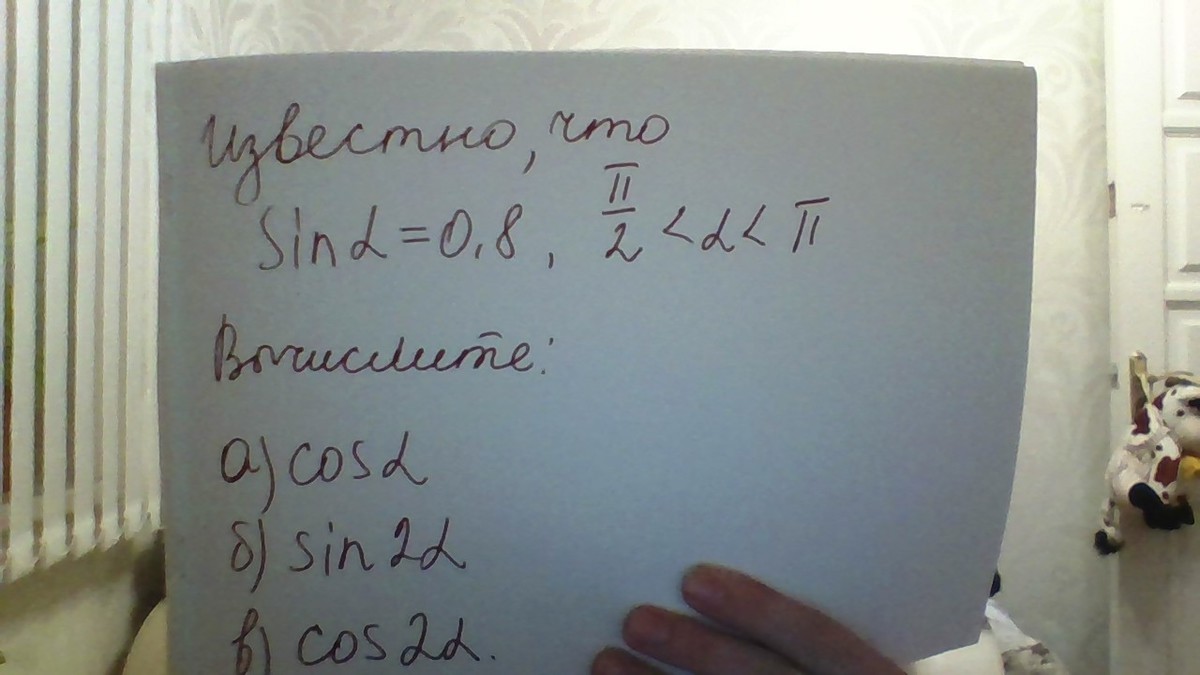 Известно, что
Sinα = 0,8, π/2 < α < π
Вычислите:
а) cosα
б) sin2α
в) cos2α.